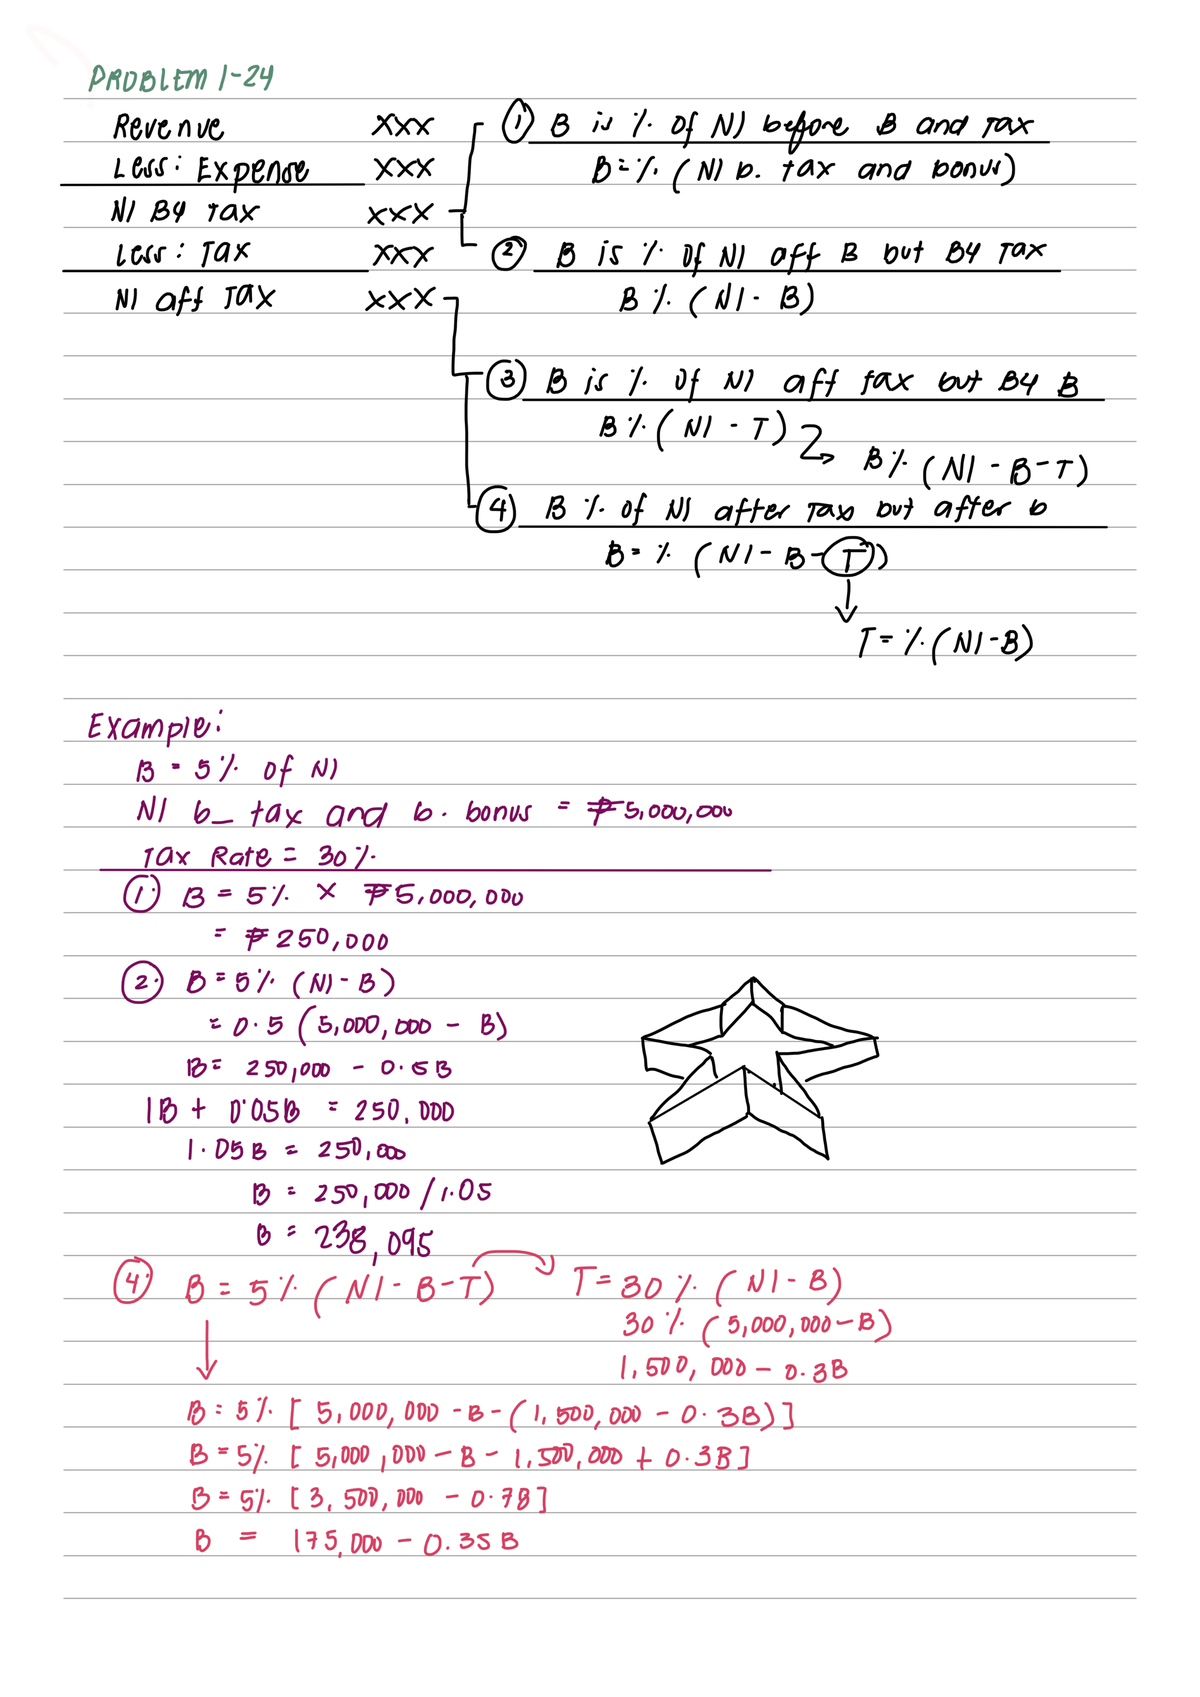 PROBLEM 1-24
Revenue XXX
Less: Expense XXX
NI B4 Tax XXX
Less: Tax XXX
NI aff Tax XXX
① B is % of NI before B and Tax
B = % (NI b. tax and bonus)
② B is % of NI aff B but B4 Tax
B % (NI - B)
③ B is % of NI aff tax but B4 B
B % (NI - T)
B % (NI - B - T)
④ B % of NI after Tax but after b
B = % (NI - B - T)
T = % (NI - B)
Example:
B = 5% of NI
NI b_ tax and b. bonus = ₱5,000,000
Tax Rate = 30%
1. B = 5% x ₱5,000,000
= ₱250,000
2. B = 5% (NI - B)
= 0.5 (5,000,000 - B)
B = 250,000 - 0.5B
1B + 0.05B = 250,000
1.05B = 250,000
B = 250,000 / 1.05
B = 238,095
4. B = 5% (NI - B - T) T = 30% (NI - B)
30% (5,000,000 - B)
1,500,000 - 0.3B
B = 5% [5,000,000 - B - (1,500,000 - 0.3B)]
B = 5% [5,000,000 - B - 1,500,000 + 0.3B]
B = 5% [3,500,000 - 0.7B]
B = 175,000 - 0.35B